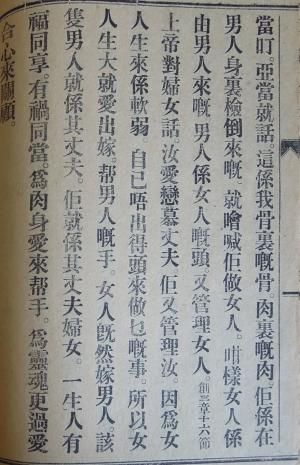 當叮。亞當就話。這係我骨裏嘅骨。肉裏嘅肉佢係在
男人身裏檢倒來嘅。就噲喊佢做女人。咁樣女人係
由男人來嘅。男人係女人嘅頭又管理女人。創三章十六節
上帝對婦女話。汝愛戀慕丈夫。佢又管理汝。因爲女
人生來係軟弱。自己唔出得頭來做乜嘅事。所以女
人生大就愛出嫁。帮男人嘅手。女人旣然嫁男人。該
隻男人就係其丈夫。佢就係其丈夫婦女。一生人有
福同享。有禍同當。爲肉身愛來帮手。爲靈魂更過愛
合心來關顧。